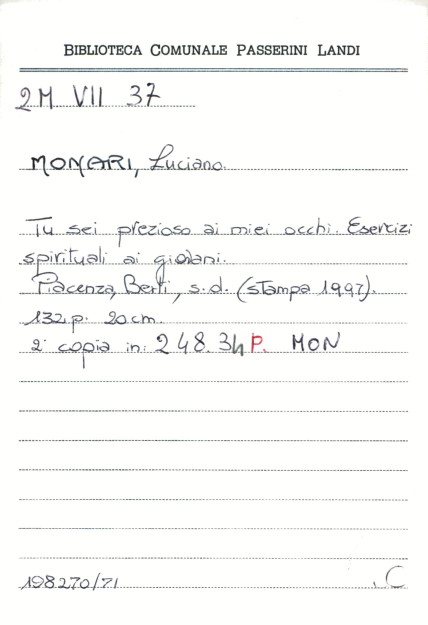 BIBLIOTECA COMUNALE PASSERINI LANDI
2M VII 37
MONARI, Luciano.
Tu sei prezioso ai miei occhi. Esercizi
spirituali ai giovani.
Piacenza, Berti, s.d. (stampa 1997).
132 p. 20 cm.
2ª copia in: 248.34 P. MON
198270/71
C